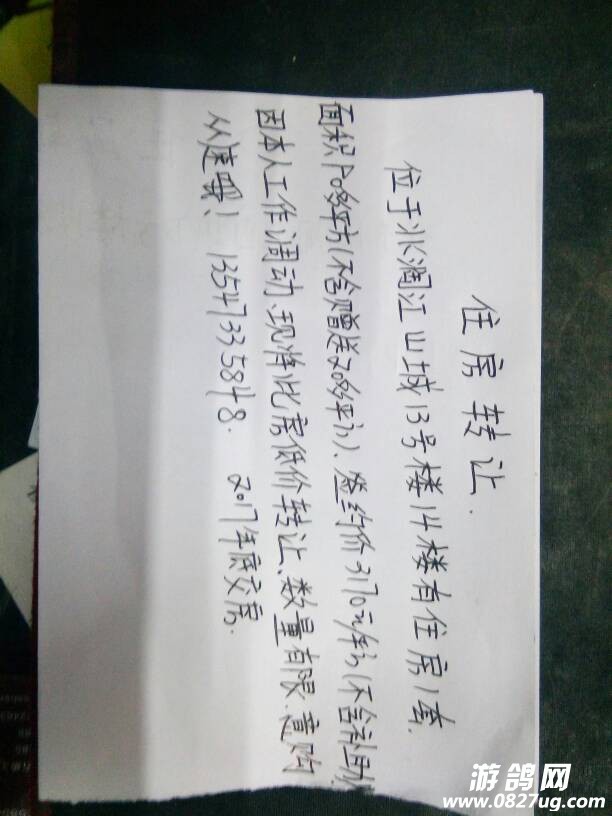 住房转让.
位于兆润江山城13号楼14楼有住房1套.
面积90多平方(不含赠送20多平方)、签约价3170元/平方(不含补助)
因本人工作调动、现将此房低价转让、数量有限、意购
从速哦! 13547335848. 2017年底交房.
游鸽网
www.0827ug.com